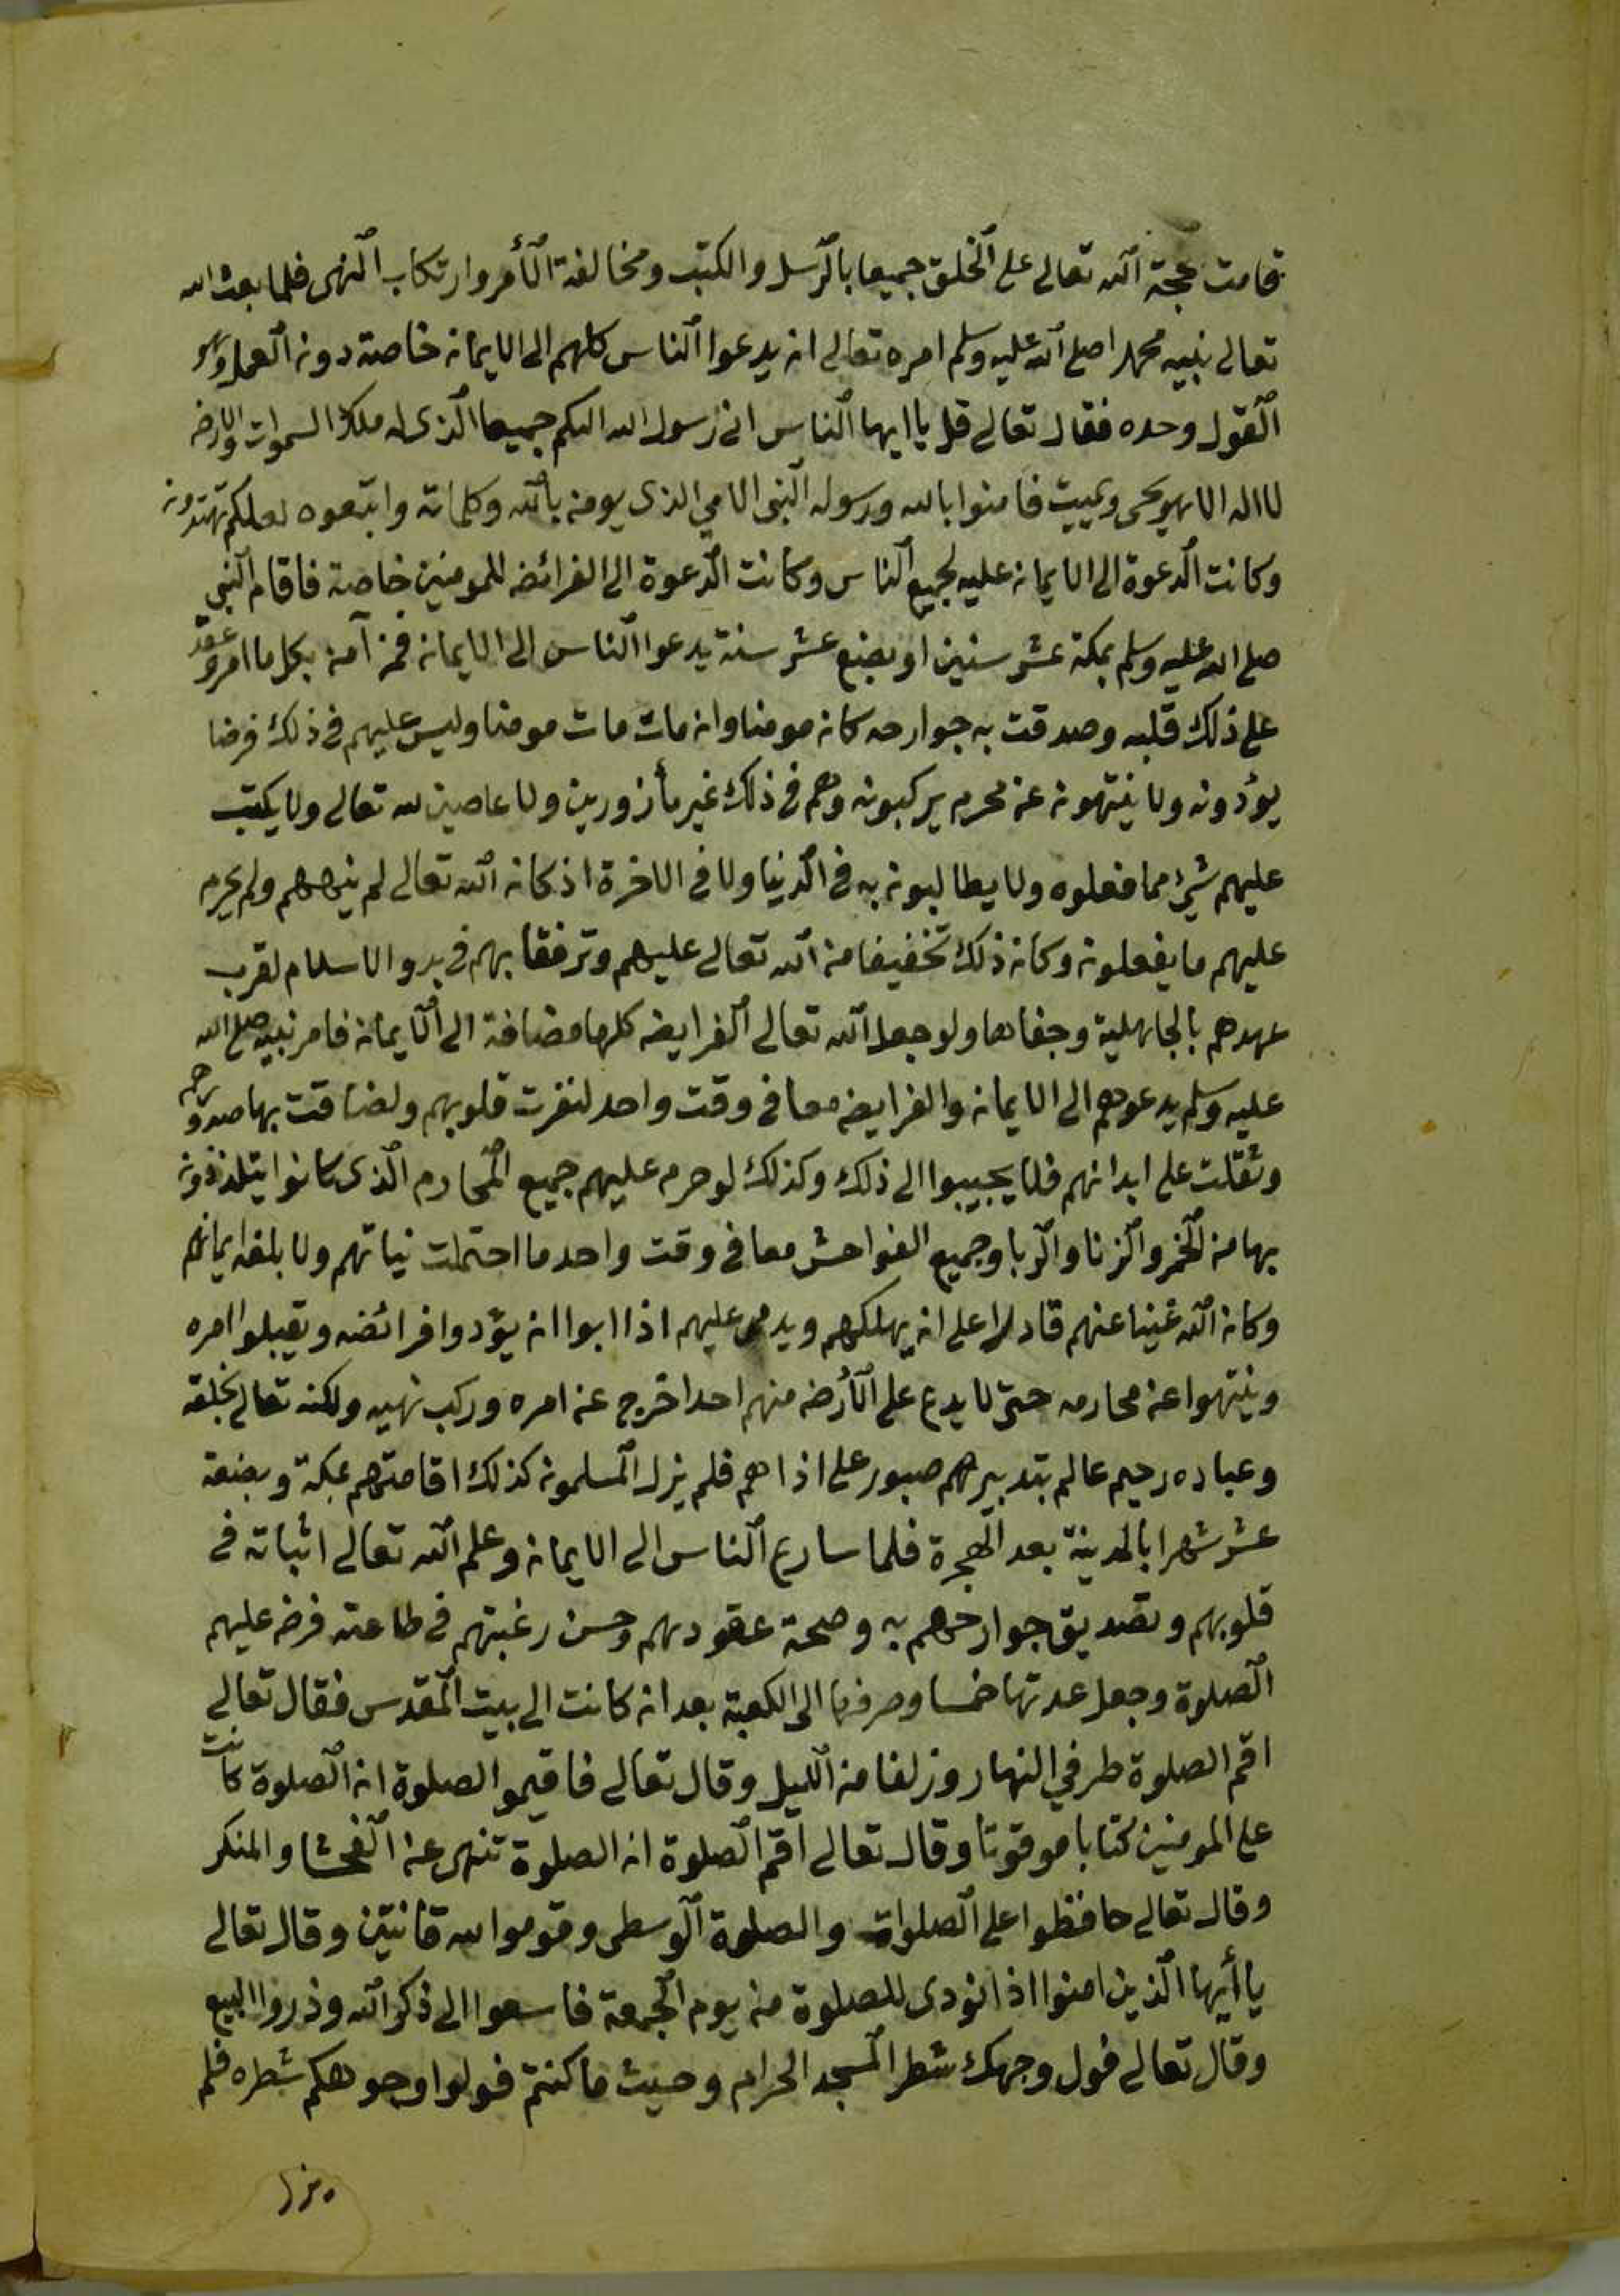 قامت حجة الله تعالى على الخلق جميعا بالرسل والكتب ومخالفة الأمر وارتكاب النهى فلما بعث الله
تعالى نبيه محمدا صلى الله عليه وسلم امره تعالى ان يدعوا الناس كلهم الى الايمان خاصة دون العمل وهو
القول وحده فقال تعالى قل يا ايها الناس انى رسول الله اليكم جميعا الذى له ملك السموات والارض
لا اله الا هو يحى ويميت فامنوا بالله ورسوله النبى الامي الذى يومن بالله وكلماته واتبعوه لعلكم تهتدون
وكانت الدعوة الى الايمان عليه لجميع الناس وكانت الدعوة الى الفرائض للمومنين خاصة فاقام النبي
صلى الله عليه وسلم بمكة عشر سنين او بضع عشر سنة يدعوا الناس الى الايمان فمن آمن بكل ما امر وعقد
على ذلك قلبه وصدقت به جوارحه كان مومنا وان مات مات مومنا وليس عليهم فى ذلك فرضا
يؤدونه ولا ينتهون عن محرم يركبونه وهم فى ذلك غير مأزورين ولا عاصين لله تعالى ولا يكتب
عليهم شيئ مما فعلوه ولا يطالبون به فى الدنيا ولا فى الاخرة اذ كان الله تعالى لم ينههم ولم يحرم
عليهم ما يفعلونه وكان ذلك تخفيفا من الله تعالى عليهم وترفقا بهم فى بدو الاسلام لقرب
عهدهم بالجاهلية وجفاها ولو جعل الله تعالى الفرايض كلها مضافة الى الايمان فامر نبيه صلى الله
عليه وسلم يدعوهم الى الايمان والفرايض معا فى وقت واحد لنفرت قلوبهم ولضاقت بها صدورهم
وثقلت على ابدانهم فلا يجيبوا الى ذلك وكذلك لو حرم عليهم جميع المحارم الذى كانوا يتلذذون
بها من الخمر والزنا والربا وجميع الفواحش معا فى وقت واحد ما احتملت نياتهم ولا بلغه ايمانهم
وكان الله غنيا عنهم قادرا على ان يهلكهم ويدمر عليهم اذا ابوا ان يؤدوا فرائضه ويقبلوا امره
وينتهوا عن محارمه حتى لا يدع على الأرض منهم احدا خرج عن امره وركب نهيه ولكنه تعالى بخلقه
وعباده رحيم عالم بتدبيرهم صبور على اذاهم فلم يزل المسلمون كذلك اقامتهم بمكة وبضعة
عشر شهرا بالمدينة بعد الهجرة فلما سارع الناس الى الايمان وعلم الله تعالى اثباته فى
قلوبهم وتصديق جوارحهم به وصحة عقودهم وحسن رغبتهم فى طاعته فرض عليهم
الصلوة وجعل عدتها خمسا وصرفها الى الكعبة بعد ان كانت الى بيت المقدس فقال تعالى
اقم الصلوة طرفي النهار وزلفا من الليل وقال تعالى فاقيموا الصلوة ان الصلوة كانت
على المومنين كتابا موقوتا وقال تعالى اقم الصلوة ان الصلوة تنهى عن الفحشا والمنكر
وقال تعالى حافظوا على الصلوات والصلوة الوسطى وقوموا لله قانتين وقال تعالى
يا أيها الذين امنوا اذا نودى للصلوة من يوم الجمعة فاسعوا الى ذكر الله وذروا البيع
وقال تعالى فول وجهك شطر المسجد الحرام وحيث ما كنتم فولوا وجوهكم شطره فلم